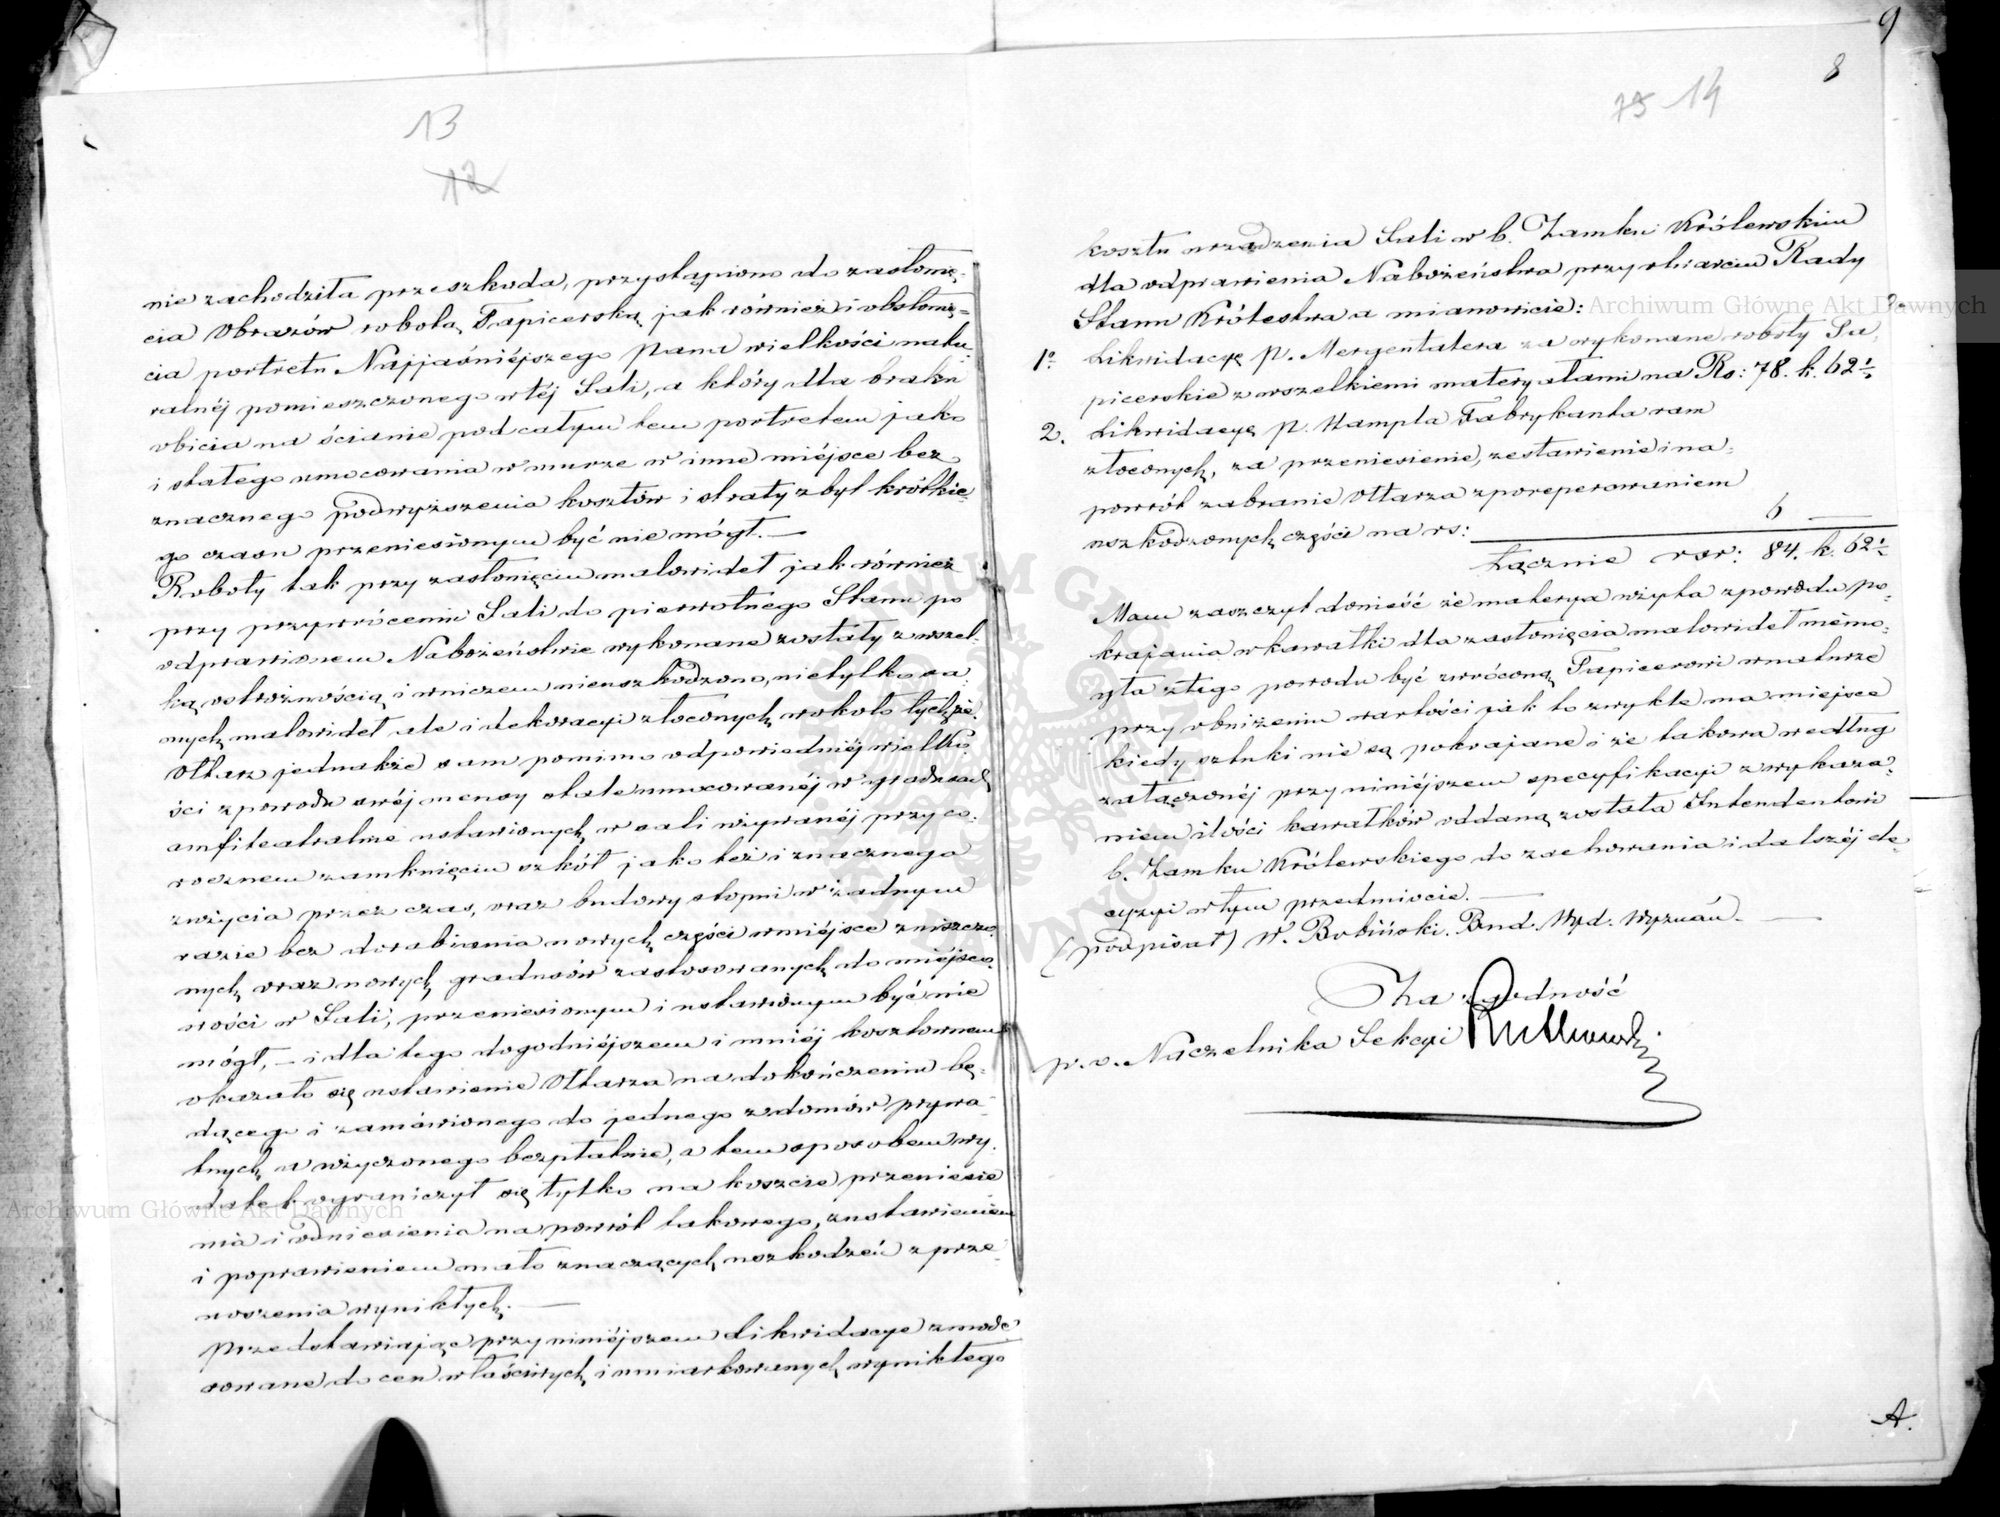 13
12
nie zachodziła przeszkoda, przystąpiono do zasłonię-
cia Obrazów robotą Tapicerską jak również i obsłonię-
cia portretu Najjaśniéjszego Pana wielkości natu-
ralnéj pomieszczonego w téj Sali, a który dla braku
obicia na ścianie pod całym tem portretem jako
i stałego umocowania w murze w inne miéjsce bez
znacznego podwyższenia kosztów i straty zbyt krótkie-
go czasu przeniesionym być nie mógł. —
Roboty tak przy zasłonięciu malowideł jak również
przy przywróceniu Sali do pierwotnego Stanu po
odprawionem Nabożeństwie wykonane zostały z wszel-
ką ostrożnością i w niczem nieuszkodzono, nietylko sa-
mych malowideł ale i dekoracyi złoconych wokoło tychże.
Ołtarz jednakże sam pomimo odpowiedniéj wielko-
ści z powodu swéj mensy stale umocowanéj w gradusach
amfiteatralnie ustawionych w sali używanéj przy co-
rocznem zamknięciu szkół jako też i znacznego
zużycia przez czas, oraz budowy stopni w żadnym
razie bez dorabiania nowych części w miéjsce zniszczo-
nych oraz nowych gradusów zastosowanych do miéjsco-
wości w Sali, przeniesionym i ustawionym być nie
mógł, — i dla tego dogodniéjszem i mniéj kosztownem
okazało się ustawienie Ołtarza na dokończeniu bę-
dącego i zamówionego do jednego z domów prywa-
tnych a użyczonego bezpłatnie, a tem sposobem wy-
datek ograniczył się tylko na koszcie przeniesie-
nia i odniesienia na powrót takowego, z ustawieniem
i poprawieniem mało znaczących uszkodzeń z prze-
noszenia wynikłych. —
Przedstawiając przy niniéjszem Likwidacye zmode-
rowane do cen właściwych i umiarkowanych wynikłego
9
8
15 14
kosztu urządzenia Sali w b. Zamku Królewskim
dla odprawienia Nabożeństwa przy otwarciu Rady
Stanu Królestwa a mianowicie:
1o Likwidacyę P. Mergentalera za wykonane roboty Ta-
picerskie z wszelkiemi materyałami na Rs: 78. k. 62½
2. Likwidacyę P. Hampla Fabrykanta ram
złoconych, za przeniesienie, zestawienie i na-
powrót zabranie Ołtarza z poreperowaniem
uszkodzonych części na rs: 6 —
Łącznie rsr: 84. k. 62½
Mam zaszczyt donieść że materya użyta z powodu po-
krajania w kawałki dla zasłonięcia malowideł niemo-
gła z tego powodu być zwróconą Tapicerowi w naturze
przy obniżeniu wartości jak to zwykle ma miejsce
kiedy sztuki nie są pokrajane i że takowa według
załączonéj przy niniéjszem specyfikacyi z wykaza-
niem ilości kawałków oddaną została Intendentowi
b. Zamku Królewskiego do zachowania i dalszéj de-
cyzyi w tym przedmiocie. —
(podpisał) W. Bobiński. Bud. Wyd. Wyznań. —
Za zgodność
p. o. Naczelnika Sekcyi Rutkowski
A.
Archiwum Główne Akt Dawnych
Archiwum Główne Akt Dawnych
ARCHIWUM GŁÓWNE AKT DAWNYCH